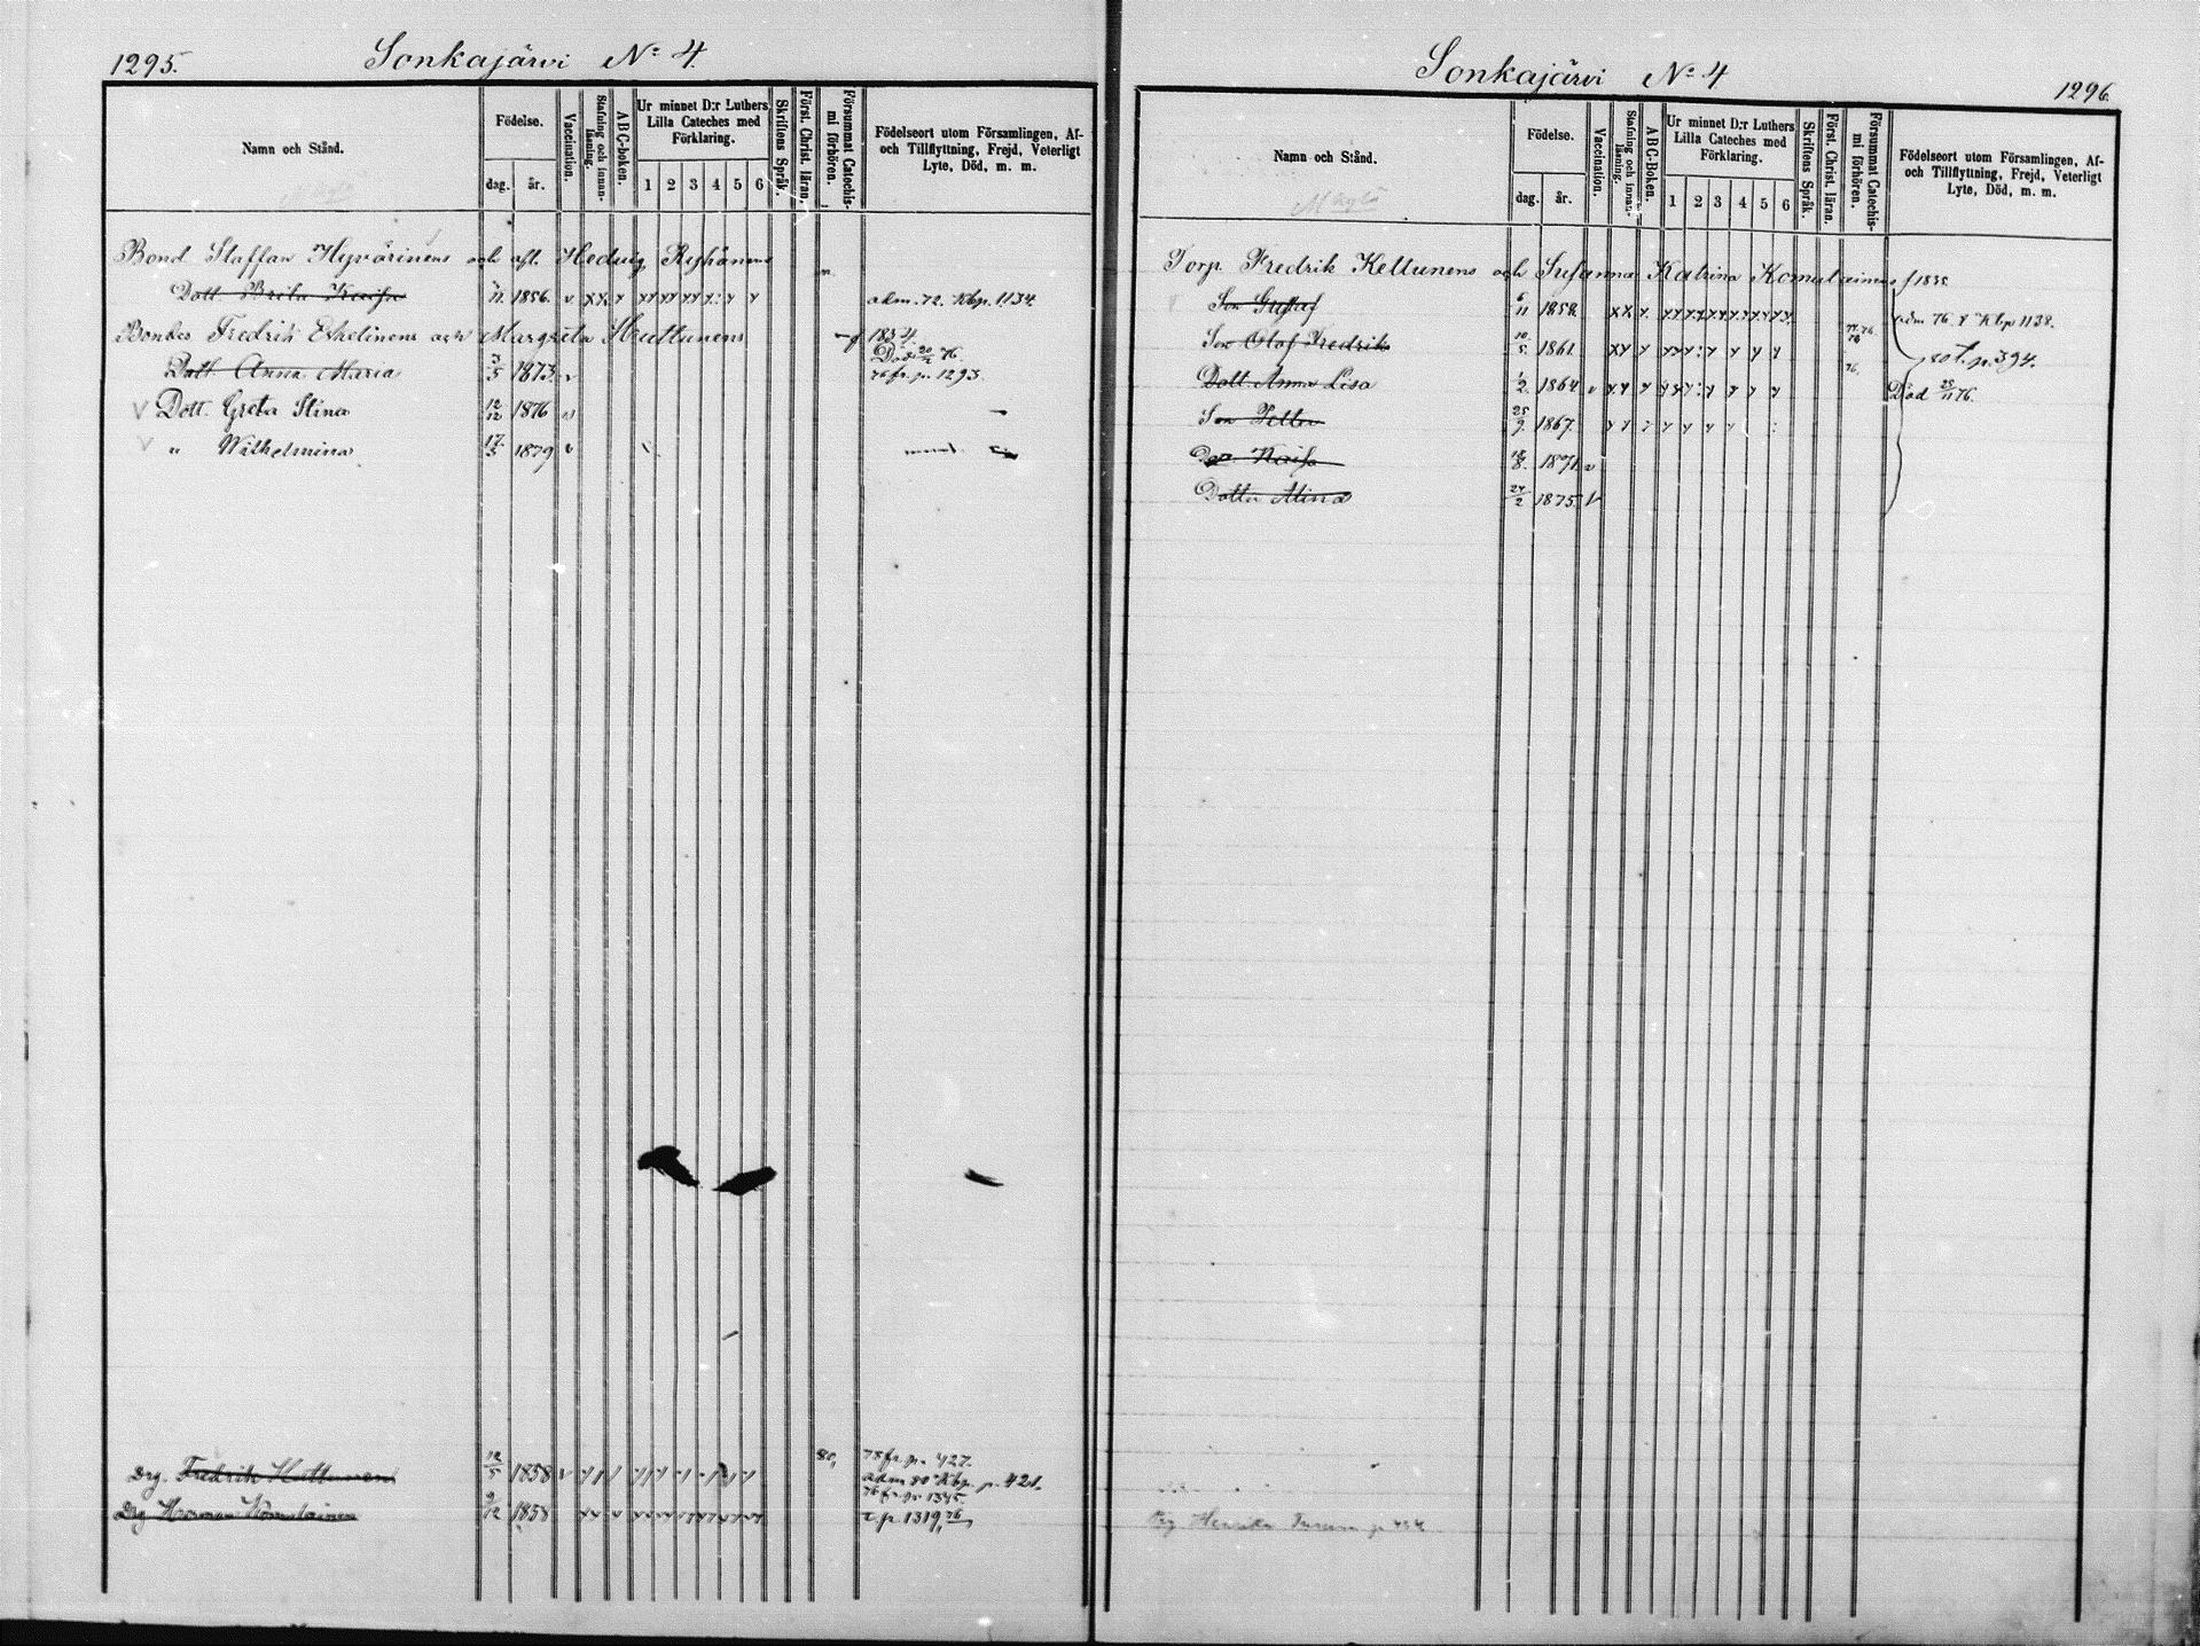 1295.
Sonkajärvi No 4.
Namn och Stånd.
Födelse.
dag.
år.
Vaccination.
Stafning och innan-läsning.
ABC-boken.
Ur minnet D:r Luthers Lilla Cateches med Förklaring.
1 2 3 4 5 6
Skriftens Språk.
Först. Christ. läran.
Försummat Catechis-mi förhören.
Födelseort utom Församlingen, Af- och Tillflyttning, Frejd, Veterligt Lyte, Död, m. m.
Bond Staffan Hyvärinens och afl. Hedvig Ryhänens
Dott Brita Kaisa 11 1856. v xx x adm. 72. Kbp. 1134.
Bondes Fredrik Eskelinens och Margreta Huttunens f 1834.
Dott Anna Maria 3/5 1873. v Död 76. 76 fr. p. 1293.
Dott. Greta Stina 12/12 1876 v
" Wilhelmina 17/5 1879 v
Drg. Fredrik Huttunen 12/5 1858 v 80, 78 fr. p. 427. adm 80 Kbp. p. 421.
76 fr. p. 1345.
Drg Herman Komulainen 9/12 1858 t. p. 1319, 76
Sonkajärvi No 4
1296.
Namn och Stånd.
Födelse.
dag.
år.
Vaccination.
Stafning och innan-läsning.
ABC-Boken.
Ur minnet D:r Luthers Lilla Cateches med Förklaring.
1 2 3 4 5 6
Skriftens Språk.
Först. Christ. läran.
Försummat Catechis-mi förhören.
Födelseort utom Församlingen, Af- och Tillflyttning, Frejd, Veterligt Lyte, Död, m. m.
Torp. Fredrik Kettunens och Susanna Katrina Komulainens f 1835
Son Gustaf 6/11 1858. adm 76. Kbp 1138.
Son Olof Fredrik 10/5 1861. 80 t. p. 394.
Dott Anna Lisa 1/2 1864 v 76. Död 25/11 76.
Son Petter 25/9 1867.
Dott. Kaisa 12/8 1871. v
Dotter Mina 24/2 1875. v